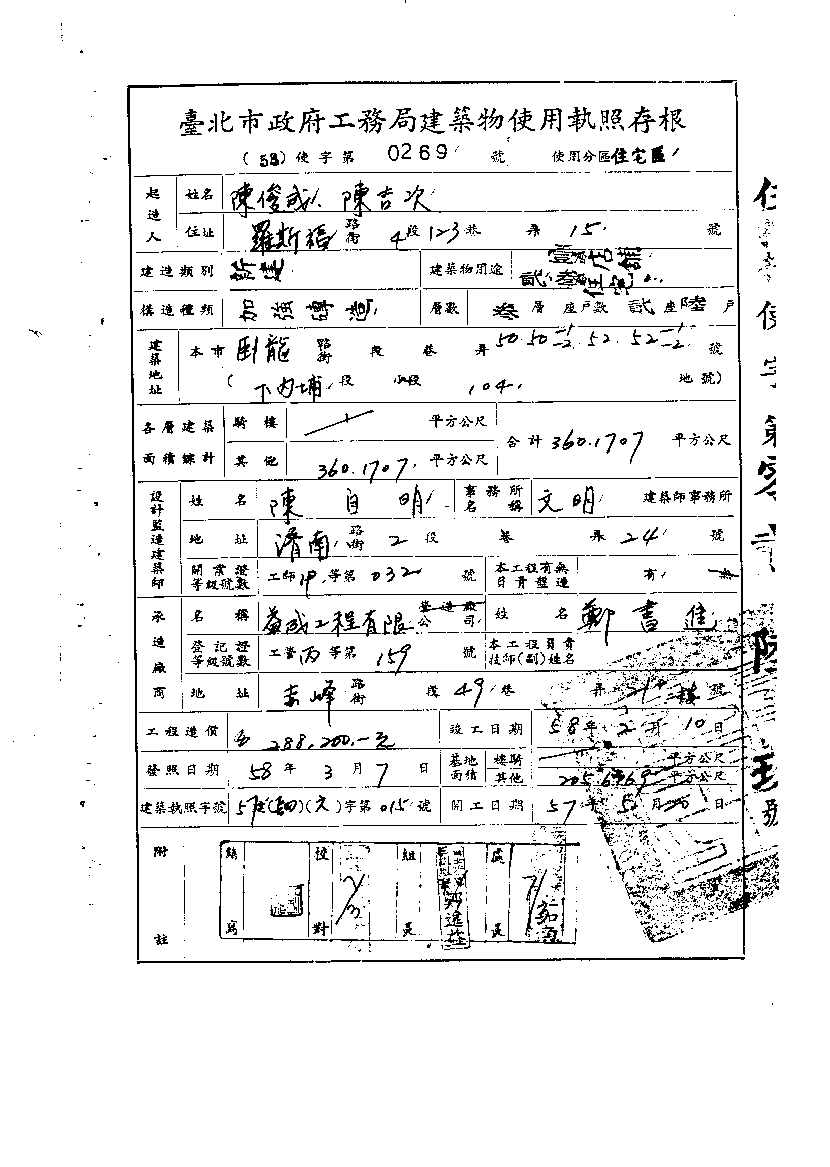 臺北市政府工務局建築物使用執照存根
(58) 使字第 0269 號 使用分區 住宅區
起造人 姓名 陳俊成 陳吉次
住址 羅斯福 路街 4段 123巷 弄 15 號
建造類別 新建 建築物用途 壹層店舖 貳.叁層住宅
構造種類 加強磚造 層數 叁層 座戶數 貳座陸戶
建築地址 本市 臥龍 路街 段 巷 弄 50. 50-2. 52. 52-2 號
(下內埔 段 小段 104 地號)
各層建築面積總計 騎樓 平方公尺 合計 360.1707 平方公尺
其他 360.1707 平方公尺
設計監造建築師 姓名 陳自明 事務所名稱 文明 建築師事務所
地址 濟南 路街 2段 巷 弄 24 號
開業證等級號數 工師甲等第 032 號 本工程有無日責監造 有 無
承造廠商 名稱 益成工程有限 營造廠公司 姓名 鄭書進
登記證等級號數 工營丙等第 159 號 本工程負責技師(副)姓名
地址 赤峰 路街 段 49巷 弄 號
工程造價 288,200.-元 竣工日期 58年 2月 10日
發照日期 58年 3月 7日 基地面積 騎樓 平方公尺 其他 平方公尺
建築執照字號 字第 015 號 開工日期 57年 5月 日
附註 繕寫 校對 組長 處長
使字第零貳陸玖號